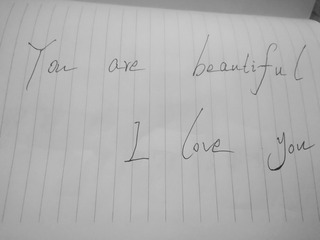 You are beautiful
I love you